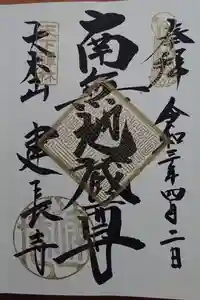 奉拝
令和三年四月二日
南無地蔵尊
天下禅林
巨福山
建長寺